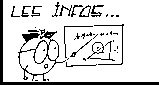 LES INFOS...